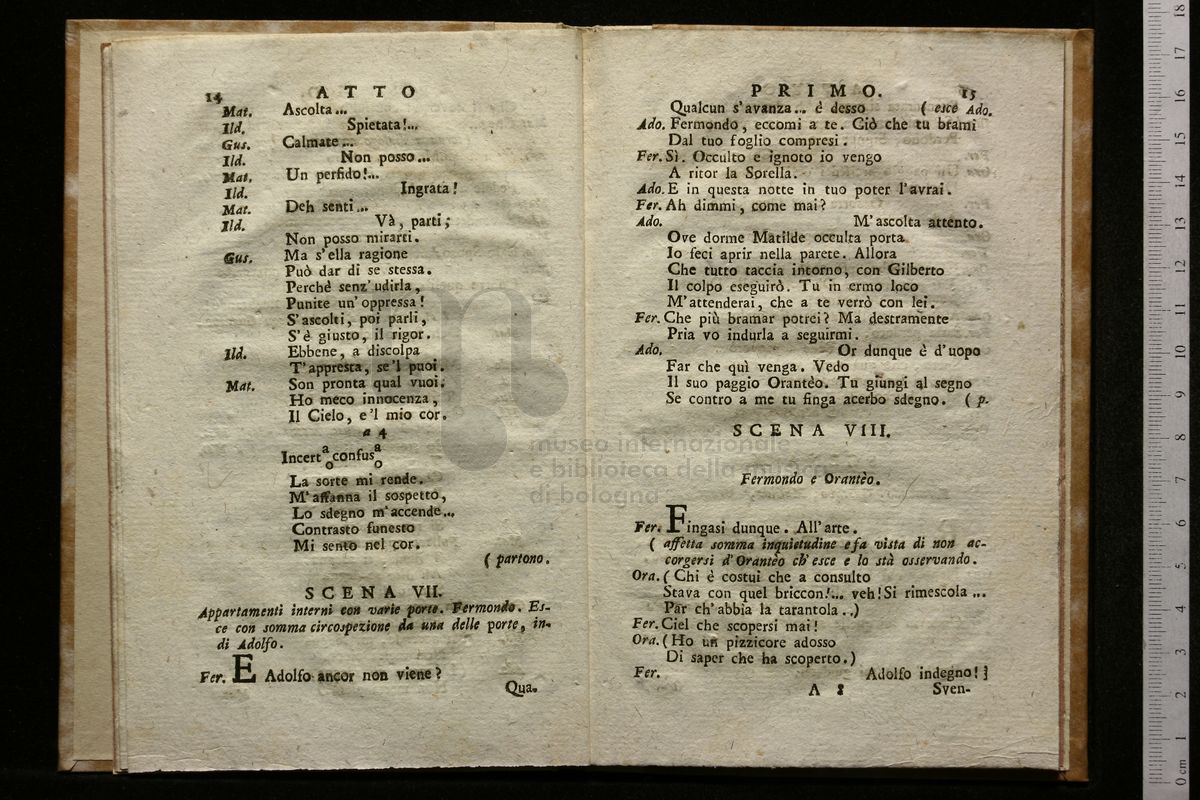 14 ATTO
Mat. Ascolta...
Ild. Spietata!...
Gus. Calmate...
Ild. Non posso...
Mat. Un perfido!...
Ild. Ingrata!
Mat. Deh senti...
Ild. Và, parti;
Non posso mirarti.
Gus. Ma s'ella ragione
Può dar di se stessa.
Perchè senz' udirla,
Punite un' oppressa!
S'ascolti, poi parli,
S'è giusto, il rigor.
Ild. Ebbene, a discolpa
T'appresta, se'l puoi.
Mat. Son pronta qual vuoi.
Ho meco innocenza,
Il Cielo, e'l mio cor.
a 4
Incert a/o confus a/o
La sorte mi rende.
M'affanna il sospetto,
Lo sdegno m'accende...
Contrasto funesto
Mi sento nel cor.
( partono.
SCENA VII.
Appartamenti interni con varie porte. Fermondo. Es-
ce con somma circospezione da una delle porte, in-
di Adolfo.
Fer. E Adolfo ancor non viene?
Qua-
PRIMO. 15
Qualcun s'avanza... è desso ( esce Ado.
Ado. Fermondo, eccomi a te. Ciò che tu brami
Dal tuo foglio compresi.
Fer. Sì. Occulto e ignoto io vengo
A ritor la Sorella.
Ado. E in questa notte in tuo poter l'avrai.
Fer. Ah dimmi, come mai?
Ado. M'ascolta attento.
Ove dorme Matilde occulta porta
Io feci aprir nella parete. Allora
Che tutto taccia intorno, con Gilberto
Il colpo eseguirò. Tu in ermo loco
M'attenderai, che a te verrò con lei.
Fer. Che più bramar potrei? Ma destramente
Pria vo indurla a seguirmi.
Ado. Or dunque è d'uopo
Far che quì venga. Vedo
Il suo paggio Orantèo. Tu giungi al segno
Se contro a me tu finga acerbo sdegno. ( p.
SCENA VIII.
Fermondo e Orantèo.
Fer. Fingasi dunque. All'arte.
( affetta somma inquietudine e fa vista di non ac-
corgersi d'Orantèo ch'esce e lo stà osservando.
Ora. ( Chi è costui che a consulto
Stava con quel briccon!... veh! Si rimescola...
Par ch'abbia la tarantola..)
Fer. Ciel che scopersi mai!
Ora. (Ho un pizzicore adosso
Di saper che ha scoperto.)
Fer. Adolfo indegno!
A Sven-
museo internazionale
e biblioteca della musica
di bologna
0 cm 1 2 3 4 5 6 7 8 9 10 11 12 13 14 15 16 17 18